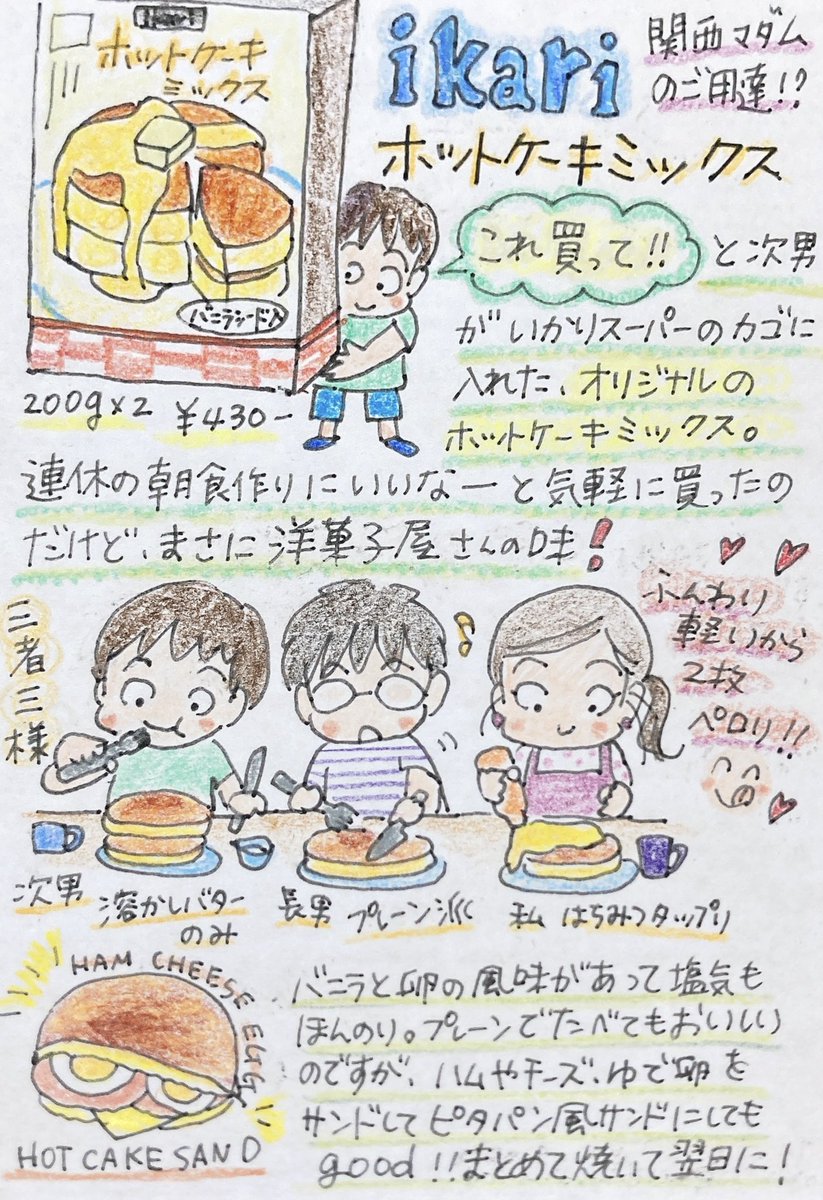 ikari
ホットケーキ
ミックス
バニラシード入
ikari
関西マダム
のご用達!?
ホットケーキミックス
これ買って!!
と次男
がいかりスーパーのカゴに
入れた、オリジナルの
ホットケーキミックス。
200g×2 ¥430-
連休の朝食作りにいいなーと気軽に買ったの
だけど、まさに洋菓子屋さんの味!
三者三様
ふんわり
軽いから
2枚
ペロリ!!
次男 溶かしバター
のみ
長男 プレーン派
私 はちみつタップリ
HAM CHEESE EGG
HOT CAKE SAND
バニラと卵の風味があって塩気も
ほんのり。プレーンでたべてもおいしい
のですが、ハムやチーズ、ゆで卵を
サンドしてピタパン風サンドにしても
good!!まとめて焼いて翌日に!